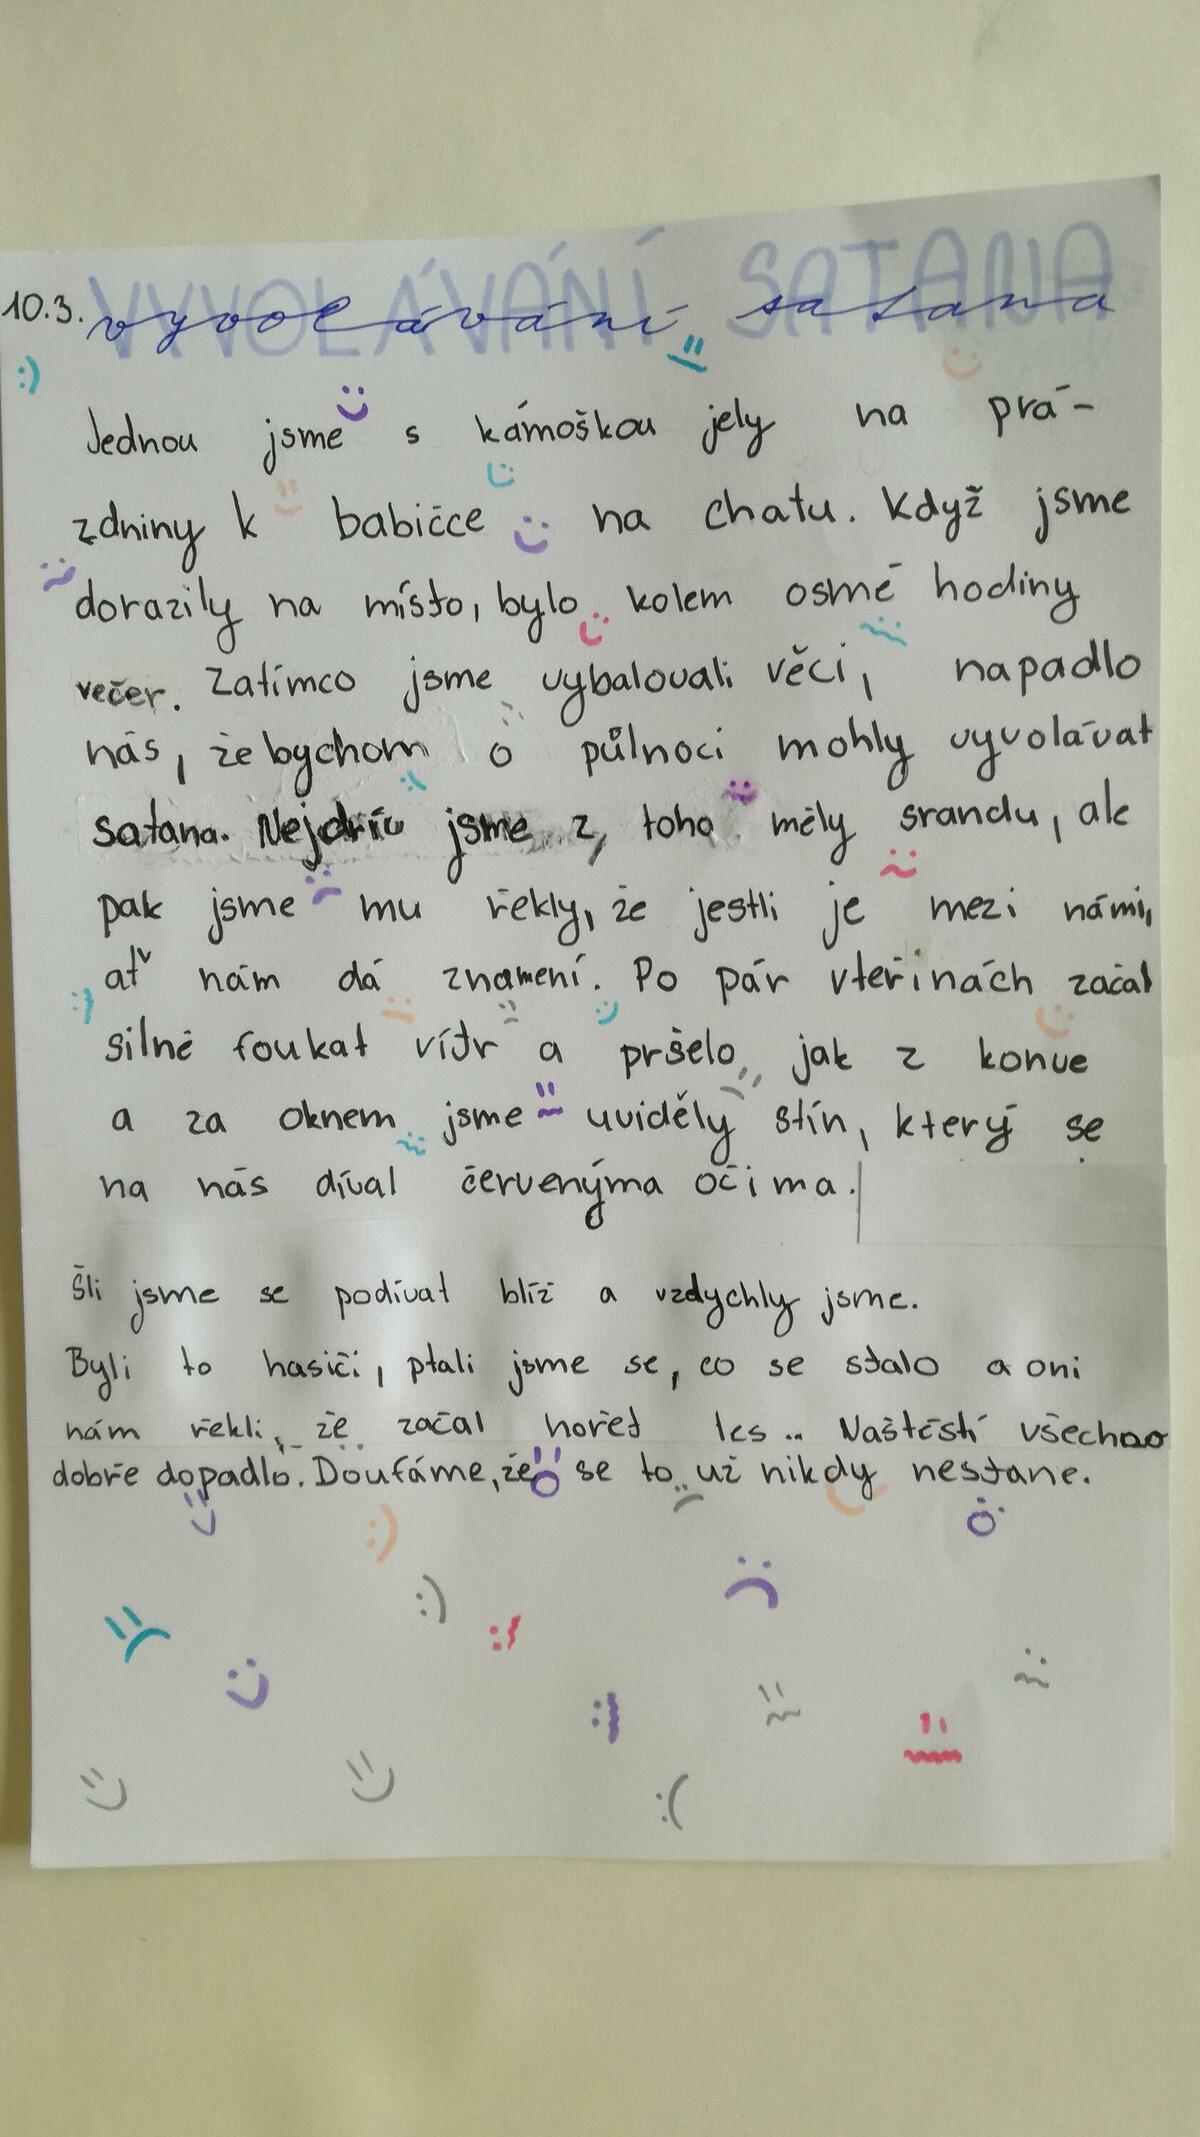 VYVOLÁVÁNÍ SATANA
10.3. vyvolávání satana
Jednou jsme s kámoškou jely na prá-
zdniny k babičce na chatu. Když jsme
dorazily na místo, bylo kolem osmé hodiny
večer. Zatímco jsme vybalovali věci, napadlo
nás, že bychom o půlnoci mohly vyvolávat
satana. Nejdřív jsme z toho měly srandu, ale
pak jsme mu řekly, že jestli je mezi námi,
ať nám dá znamení. Po pár vteřinách začal
silně foukat vítr a pršelo jak z konve
a za oknem jsme uviděly stín, který se
na nás díval červenýma očima.
Šli jsme se podívat blíž a vzdychly jsme.
Byli to hasiči, ptali jsme se, co se stalo a oni
nám řekli, že začal hořet les.. Naštěstí všechno
dobře dopadlo. Doufáme, že se to už nikdy nestane.